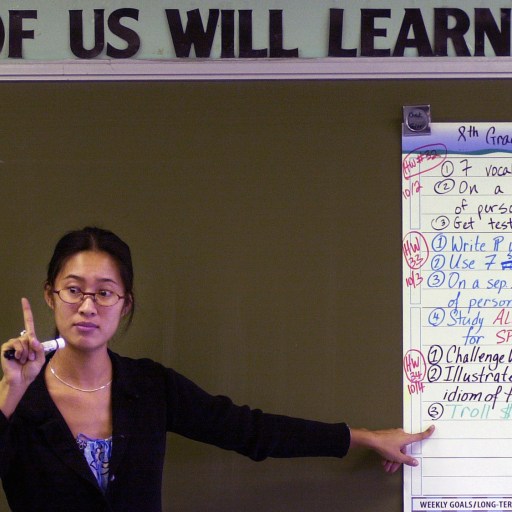 OF US WILL LEARN
8th Gra
HW #32
10/2
① 7 voca
② On a
of perso
③ Get test
HW 33
10/3
① Write
② Use 7
③ On a sep.
of person
④ Study AL
for SP
HW 34
10/4
① Challenge
② Illustrate
idiom of t
③ Troll $
WEEKLY GOALS/LONG-TER